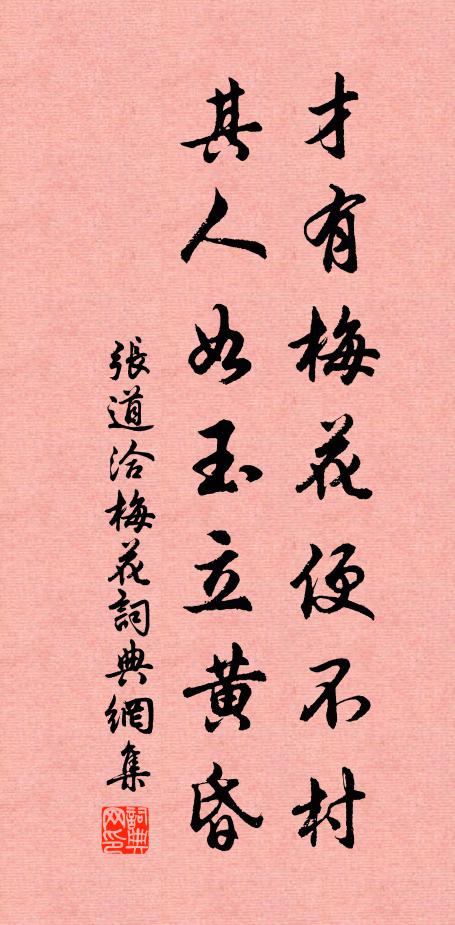 才有梅花便不村
其人如玉立黄昏
張道洽梅花詞典網集
詞典网印